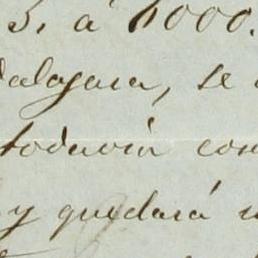 5. á 6000.
dalajara, se
todavía con
y quedará